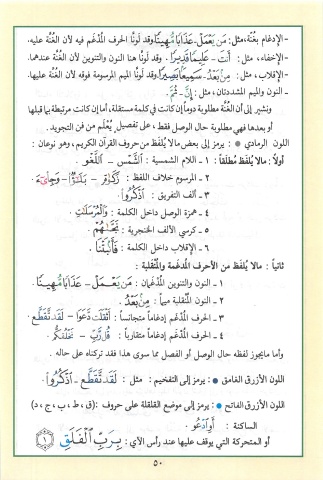 - الإدغام بغُنَّة، مثل: مَن يَعْمَلْ - عَذَابًا مُّهِينًا، وقد لونَّا الحرف المُدغَم فيه لأن الغُنَّة عليه.
- الإخفاء، مثل: أَنتَ - عَلِيمًا قَدِيرًا، وقد لونَّا هنا النون والتنوين لأن الغُنَّة عندهما.
- الإقلاب، مثل: مِنۢ بَعْدُ - سَمِيعًۢا بَصِيرًا، وقد لونَّا الميم المرسومة فوقه لأن الغُنَّة عليها.
- النون والميم المشددتان، مثل: إِنَّ - ثُمَّ.
ونشير إلى أن الغُنَّة مطلوبة دومًا إن كانت في كلمة مستقلة، أما إن كانت مرتبطة بما قبلها
أو بعدها فهي مطلوبة حال الوصل فقط، على تفصيل يُعْلَم من فن التجويد.
اللون الرمادي : يرمز إلى بعض مالا يُلفَظ من حروف القرآن الكريم، وهو نوعان :
أولاً : مالا يُلفَظ مُطلَقاً : ١ - اللام الشمسية : الشَّمْس - اللَّغْو.
٢ - المرسوم خلاف اللفظ :
٣ - ألف التفريق : اذْكُرُوا۟.
٤ - همزة الوصل داخل الكلمة : وَالْمُرْسَلَٰتِ.
٥ - كرسي الألف الخنجرية : نَجَّىٰهُمْ.
٦ - الإقلاب داخل الكلمة : فَأَنۢبَتْنَا.
ثانياً : مالا يُلفَظ من الأحرف المُدغَمة والمُنقلبة :
١ - النون والتنوين المُدْغَمان : مَن يَعْمَلْ - عَذَابًا مُّهِينًا.
٢ - النون المُنقلبة ميماً : مِنۢ بَعْدُ.
٣ - الحرف المُدغَم إدغاماً متجانساً : أَثْقَلَت دَّعَوَا - لَقَد تَّقَطَّعَ.
٤ - الحرف المُدغَم إدغاماً متقارباً : قُل رَّبِّ - نَخْلُقكُّم.
وأما مايجوز لفظه حال الوصل أو الفصل مما سوى هذا فقد تركناه على حاله.
اللون الأزرق الغامق : يرمز إلى التفخيم : مثل : لَقَد تَّقَطَّعَ - اذْكُرُوا۟.
اللون الأزرق الفاتح : يرمز إلى موضع القلقلة على حروف : (ق، ط، ب، ج، د)
الساكنة : أَوِ ادْعُوا۟.
أو المتحركة التي يوقف عليها عند رأس الآي : بِرَبِّ الْفَلَقِ ١
٥٠